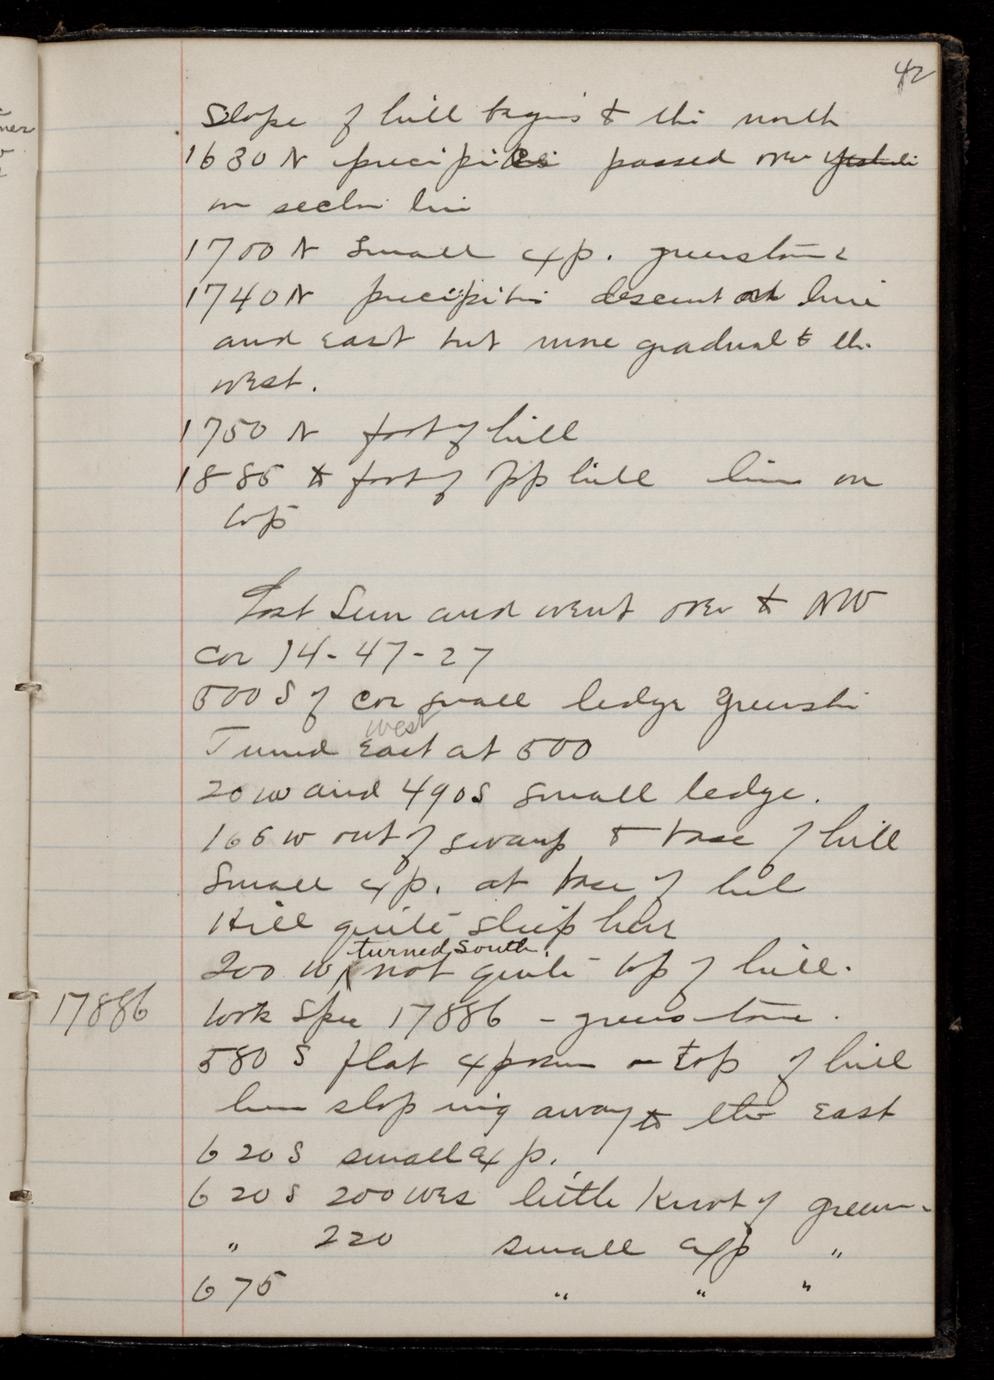 42
Slope of hill begins to the north
1630 N precipices passed over
on section line
1700 N small exp. greenstone
1740 N precipitous descent at line
and East but more gradual to the
west.
1750 N foot of hill
1885 to foot of opp hill line on
top
Lost Sun and went over to NW
cor 14-47-27
500 S of cor small ledge greenstn
west
Turned East at 500
20 W and 490 S small ledge.
165 W out of swamp to base of hill
Small exp. at base of hill
Hill quite steep here
turned South.
200 W not quite top of hill.
17886 took Spec 17886 - greenstone.
580 S flat exposure on top of hill
here sloping away to the East
620 S small exp.
620 S 200 Wes little knot of green-
" 220 small exp "
675 " " "